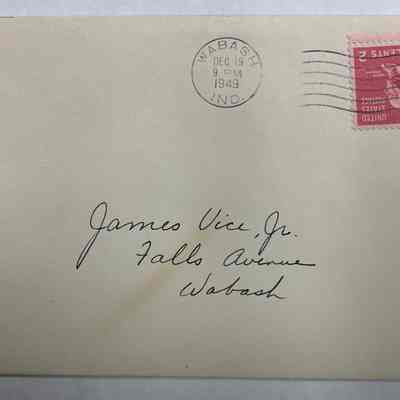 WABASH
DEC 19
9 PM
1949
IND.
2 CENTS
UNITED
STATES
James Vice, Jr.
Falls Avenue
Wabash